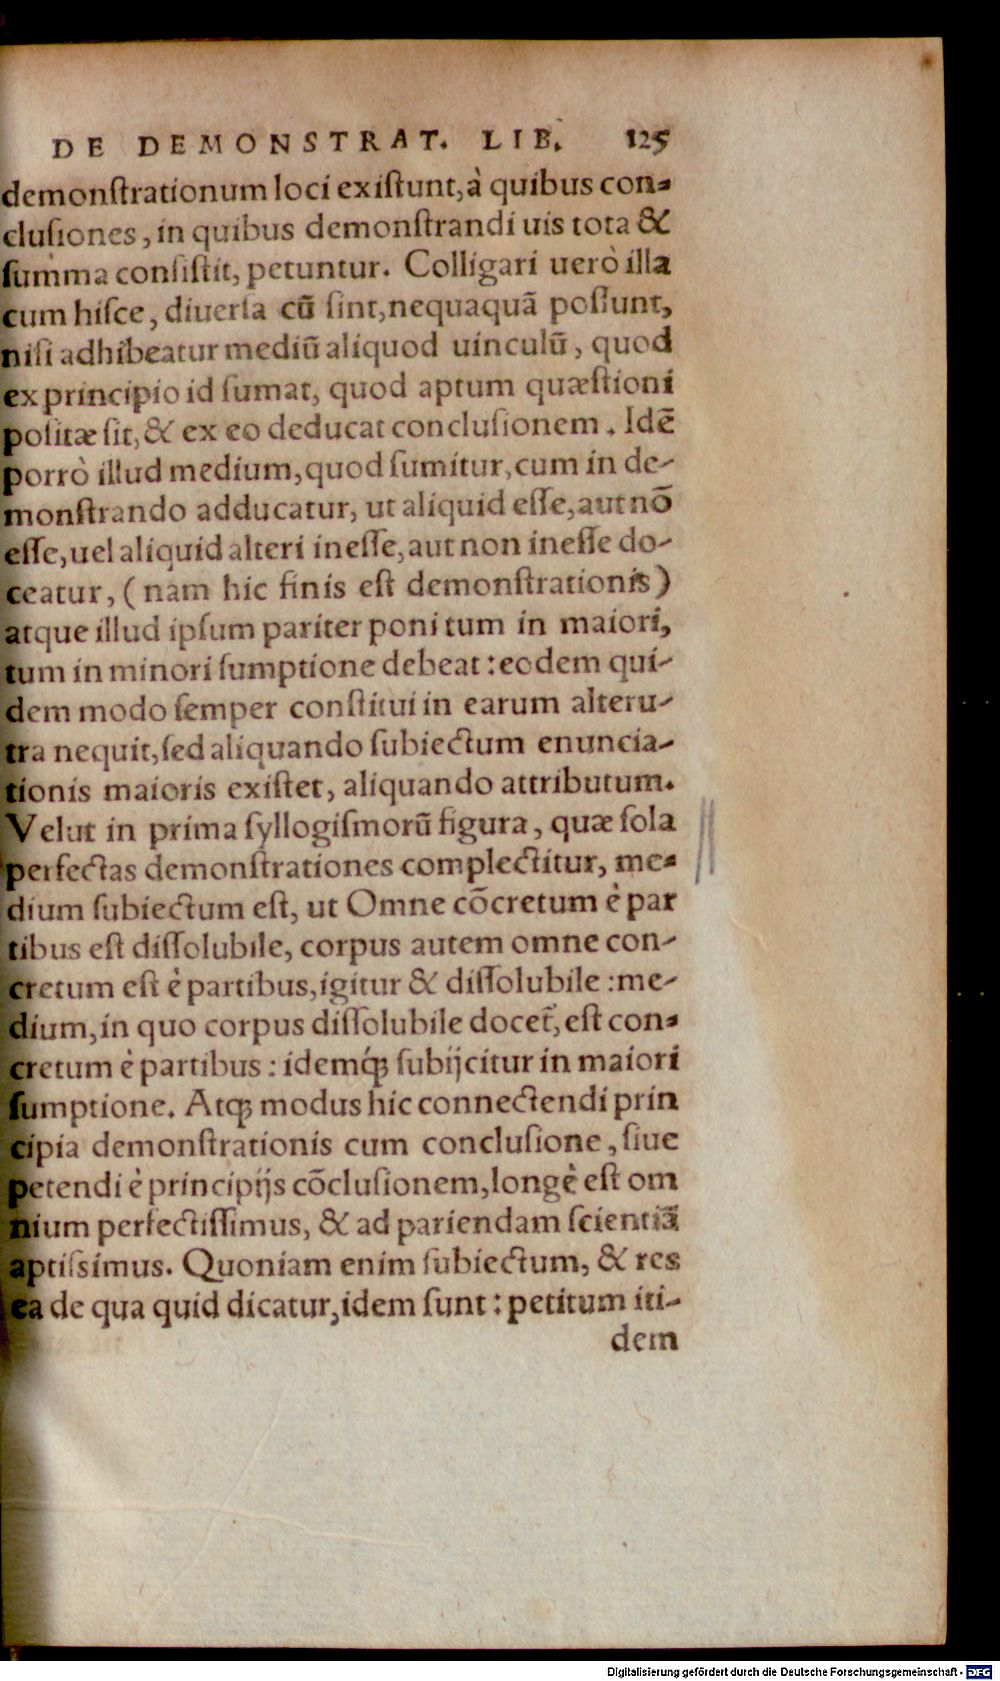 DE DEMONSTRAT. LIB. 125
demonſtrationum loci exiſtunt, à quibus con⸗
cluſiones, in quibus demonſtrandi uis tota &
ſumma conſiſtit, petuntur. Colligari uerò illa
cum hiſce, diuerſa cū ſint, nequaquā poſſunt,
niſi adhibeatur mediū aliquod uinculū, quod
ex principio id ſumat, quod aptum quæſtioni
poſitæ ſit, & ex eo deducat concluſionem. Idē
porrò illud medium, quod ſumitur, cum in de-
monſtrando adducatur, ut aliquid eſſe, aut nō
eſſe, uel aliquid alteri ineſſe, aut non ineſſe do-
ceatur, (nam hic finis eſt demonſtrationis)
atque illud ipſum pariter poni tum in maiori,
tum in minori ſumptione debeat: eodem qui-
dem modo ſemper conſtitui in earum alteru-
tra nequit, ſed aliquando ſubiectum enuncia-
tionis maioris exiſtet, aliquando attributum.
Velut in prima ſyllogiſmorū figura, quæ ſola
perfectas demonſtrationes complectitur, me⸗
dium ſubiectum eſt, ut Omne cōcretum è par
tibus eſt diſſolubile, corpus autem omne con-
cretum eſt è partibus, igitur & diſſolubile: me-
dium, in quo corpus diſſolubile docet̃, eſt con⸗
cretum è partibus: idemq́ꝫ ſubijcitur in maiori
ſumptione. Atqꝫ modus hic connectendi prin
cipia demonſtrationis cum concluſione, ſiue
petendi è principijs cōcluſionem, longè eſt om
nium perfectiſſimus, & ad pariendam ſcientiā
aptiſsimus. Quoniam enim ſubiectum, & res
ea de qua quid dicatur, idem ſunt: petitum iti-
dem
Digitalisierung gefördert durch die Deutsche Forschungsgemeinschaft - DFG